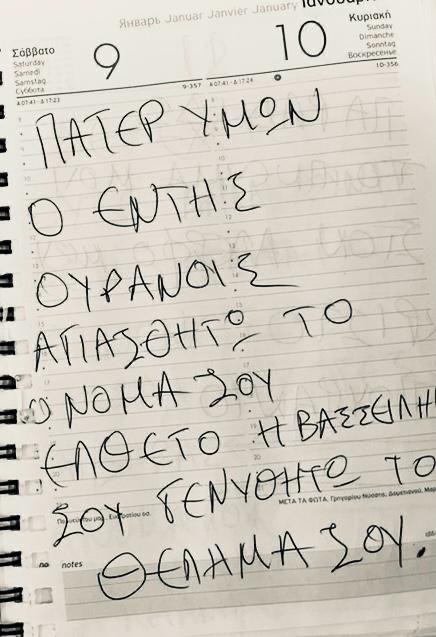 Январь Januar Janvier January Ιανουάρι
Σάββατο
Saturday
Samedi
Samstag
Суббота
9
10
Κυριακή
Sunday
Dimanche
Sonntag
Воскресенье
Α 07:41 - Δ 17:23
9-357
Α 07:41 - Δ 17:24
10-356
ΠΑΤΕΡ ΥΜΩΝ
Ο ΕΝΤΗΣ
ΟΥΡΑΝΟΙΣ
ΑΓΙΑΣΘΗΤΩ ΤΟ
ΟΝΟΜΑ ΣΟΥ
ΕΛΘΕΤΟ Η ΒΑΣΣΕΙΛΗ
ΣΟΥ ΓΕΝΥΘΗΤΩ ΤΟ
ΜΕΤΑ ΤΑ ΦΩΤΑ, Γρηγορίου Νύσσης, Δομετιανού, Μαρ
ΘΕΛΗΜΑ ΣΟΥ.
notes